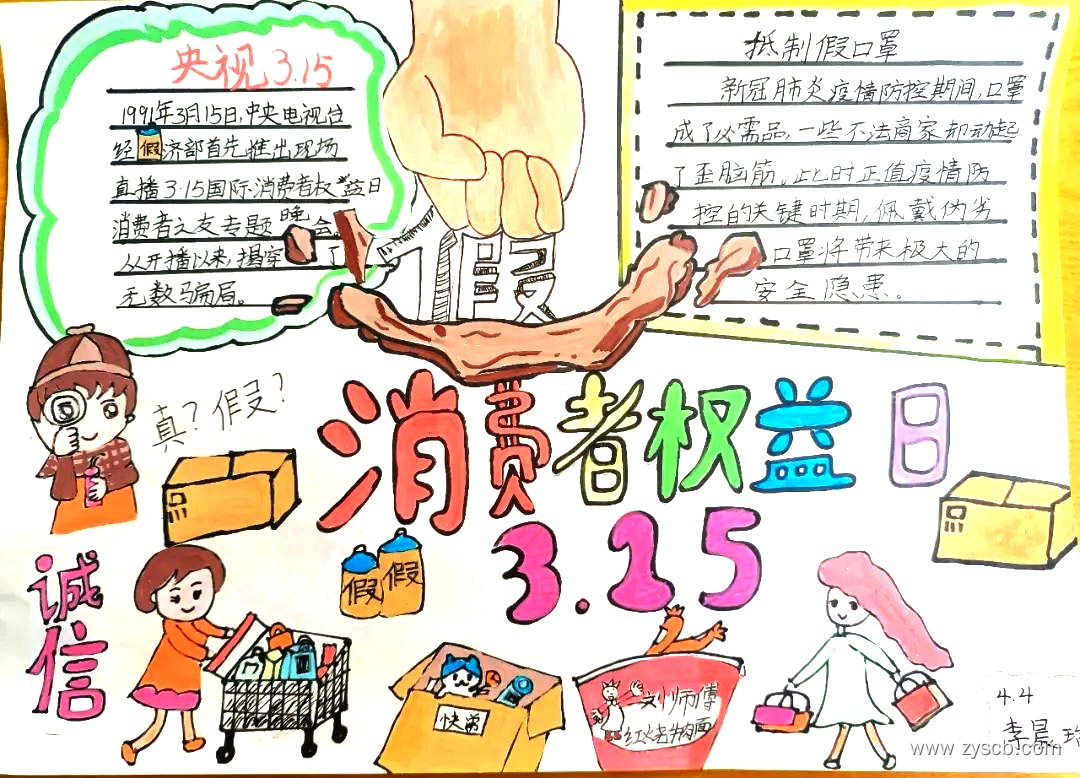 央视3.15
1991年3月15日,中央电视台
经假济部首先推出现场
直播3·15国际消费者权益日
消费者之友专题晚会,
从开播以来,揭穿了
无数骗局。
抵制假口罩
新冠肺炎疫情防控期间,口罩
成了必需品,一些不法商家却动起
了歪脑筋。此时正值疫情防
控的关键时期,佩戴伪劣
口罩将带来极大的
安全隐患。
假
真?假?
消费者权益日
3.15
诚信
假 假
快弟
刘师傅
4.4
李晨
www.zyscb.com